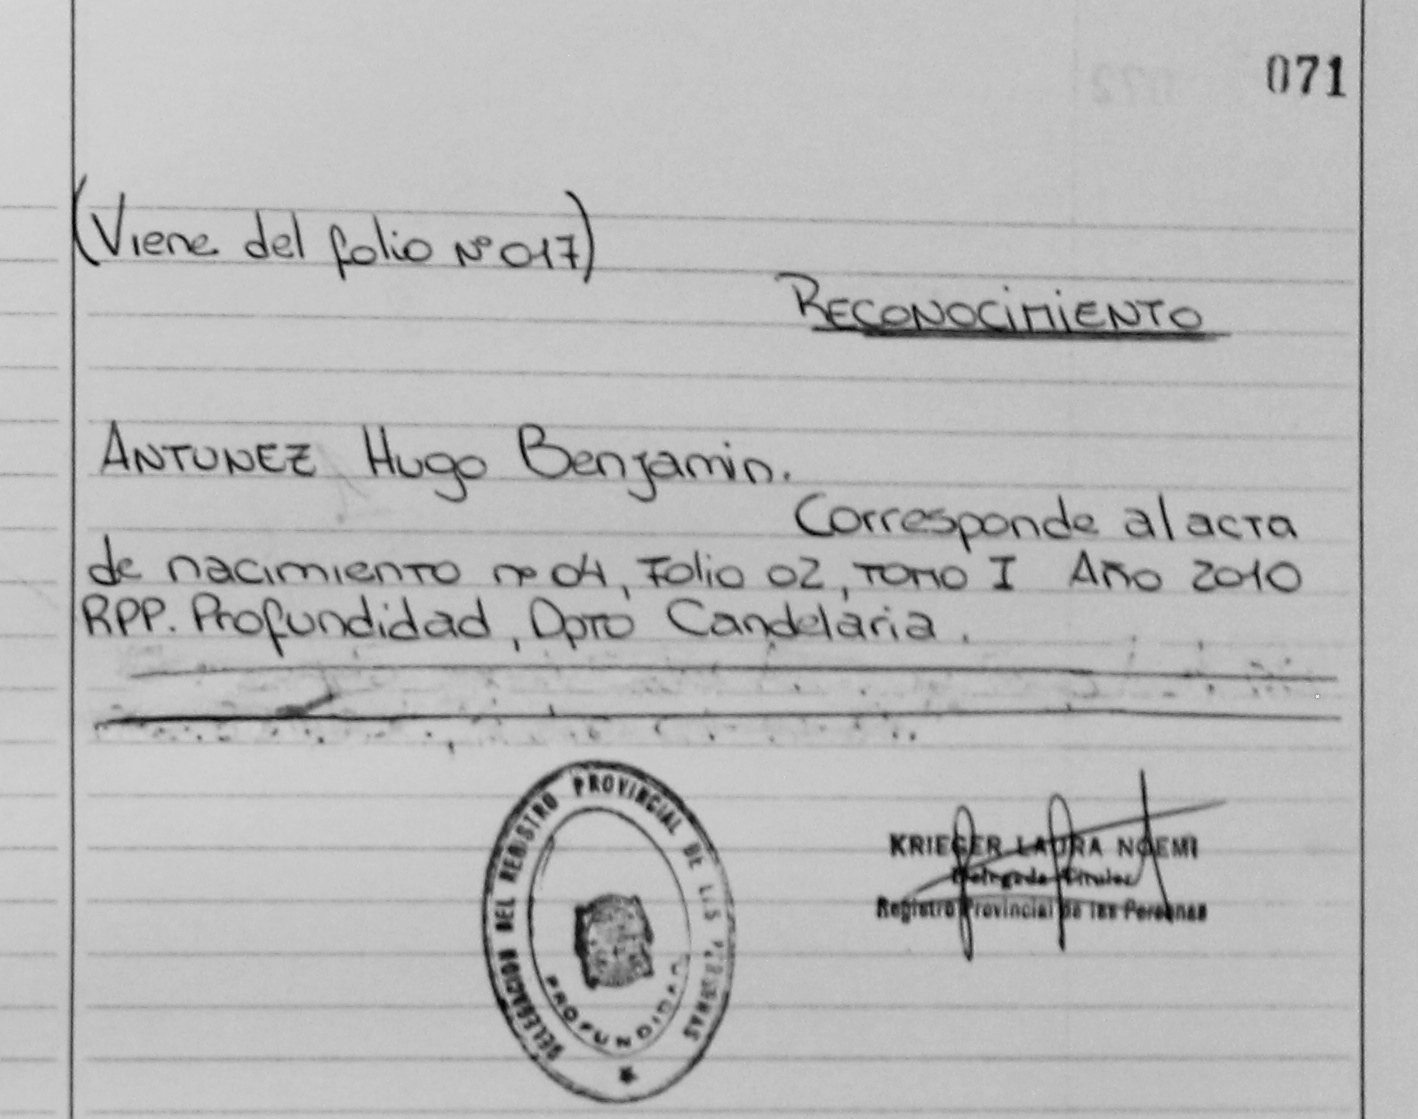 071
(Viene del folio Nº 017)
RECONOCIMIENTO
ANTUNEZ Hugo Benjamin.
Corresponde al acta
de nacimiento nº 04, Folio 02, Tomo I Año 2010
RPP. Profundidad, Dpto Candelaria.
DELEGACION DEL REGISTRO PROVINCIAL DE LAS PERSONAS
PROFUNDIDAD
KRIEGER LAURA NOEMI
Delegada Titular
Registro Provincial de las Personas